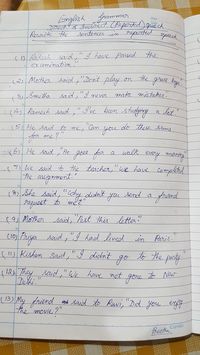 English Grammar
Direct & Indirect (Reported) speech
Rewrite the sentences in reported speech
(1) Rakesh said, "I have passed the
examination."
(2) Mother said, "Don't play on the grass, boys."
(3) Smitha said, "I never make mistakes."
(4) Ramesh said, "I've been studying a lot"
(5) He said to me, Can you do these sums
for me?
(6) He said, "He goes for a walk every morning"
(7) We said to the teacher, "we have completed
the assignment."
(8) She said, "why didn't you send a friend
request to me?"
(9) Mother said, "Post this letter."
(10) Priya said, "I had lived in Paris"
(11) Kishan said, "I didn't go to the party"
(12) They said, "We have not gone to New
Delhi"
(13) My friend said to Ravi, "Did you enjoy
the movie?"